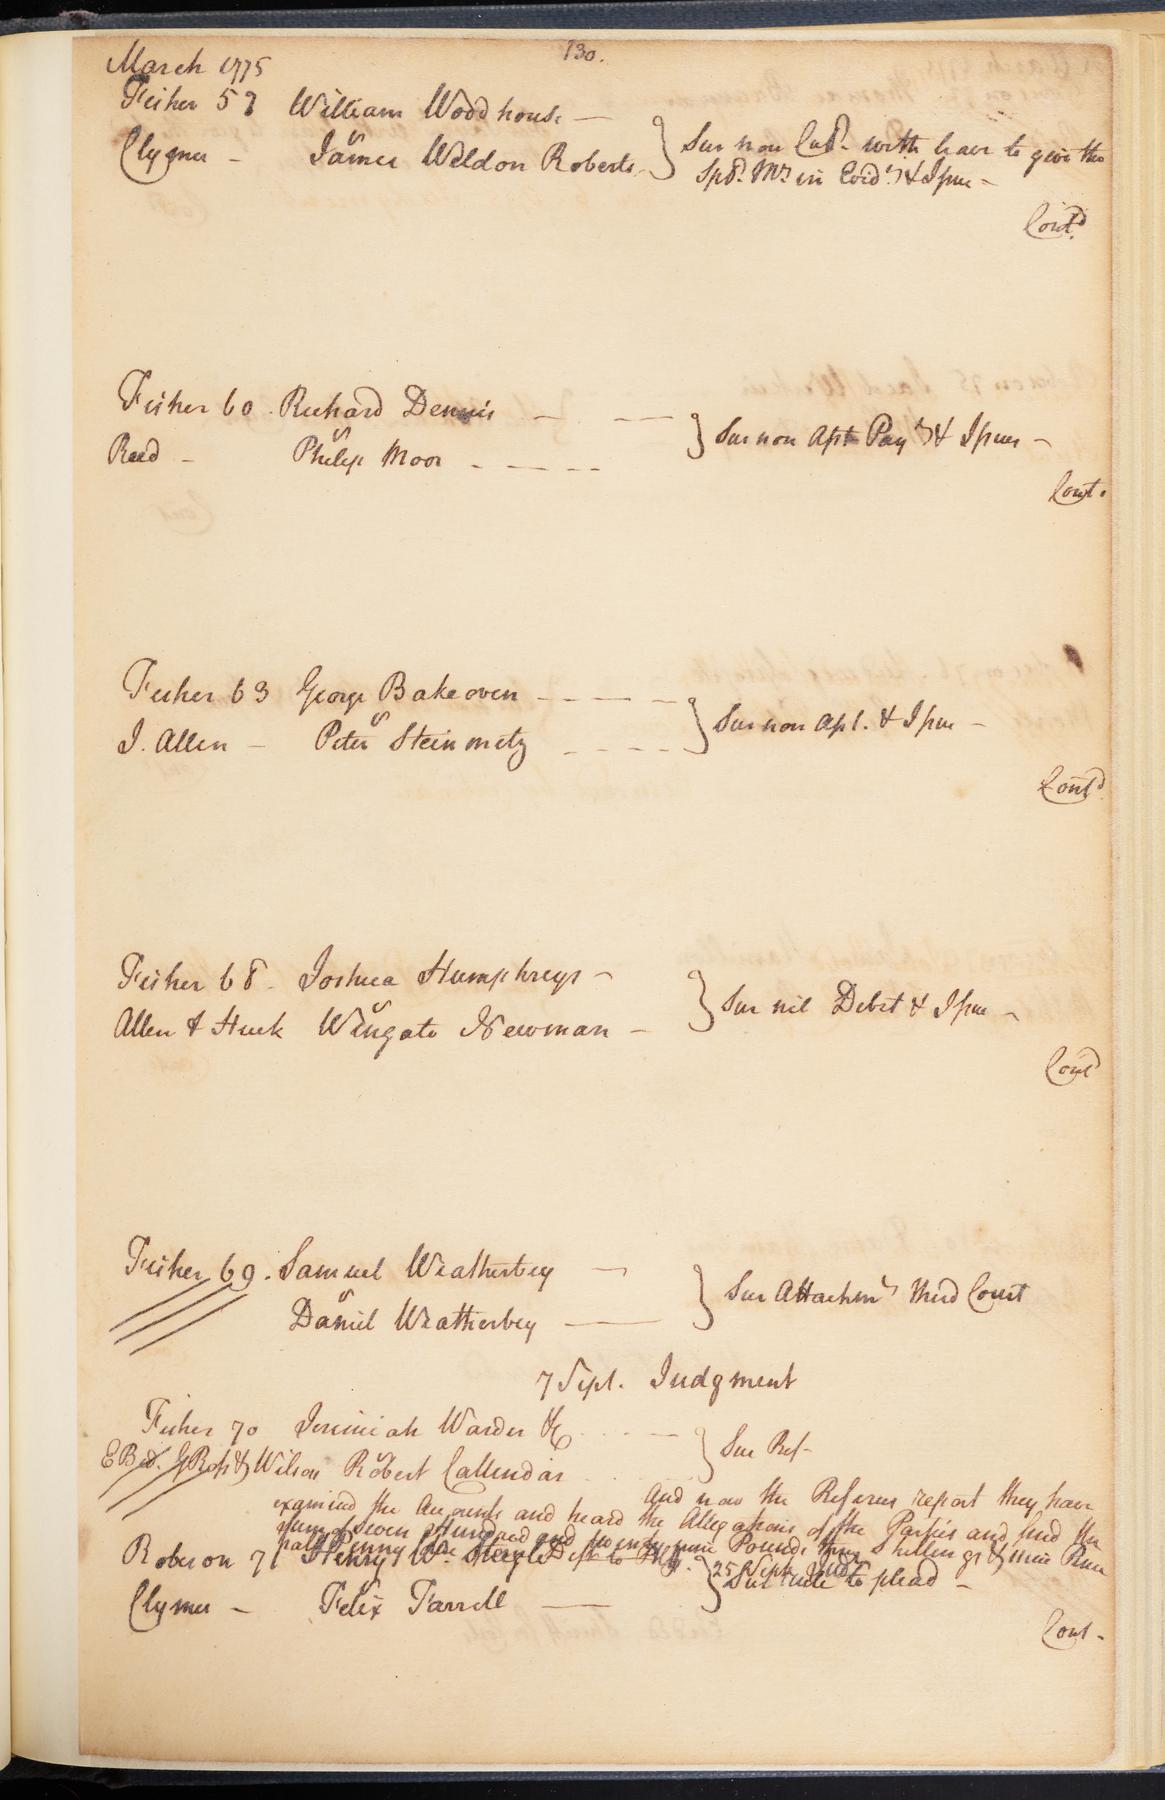 130.
March 1775
Fisher 57 William Woodhouse —
vs
Clymer - James Weldon Roberts } Sur non Cul. with leave to give the
Spl. Mr. in Evid. & Issue -
Contd
Fisher 60. Richard Dennis — —
vs
Reed - Philip Moor - - - - } Sur non Apt Paymt & Issues -
Cont.
Fisher 63 George Bakeoven - - - -
vs
J. Allen - Peter Steinmetz - - - - } Sur non Apt. & Issue -
Contd
Fisher 68. Joshua Humphreys -
vs
Allen & Huck Wingate Newman - } Sur nil Debet & Issue -
Contd
Fisher 69. Samuel Weatherbey —
vs
Daniel Weatherbey — } Sur Attachmt third Court
7 Sept. Judgment
Fisher 70 Jeremiah Warder &c
vs
& Wilson Robert Callendar } Sur Ref-
And now the Referees report they have
examined the Accounts and heard the Allegations of the Parties and find the
sum of Seven Hundred and twenty nine Pounds Shillings & nine Pence
half Penny due Deft to Plff. 25 Sept. Judt
Roberson 71 Henry Wm. Steigle
vs
Clymer - Felix Farrell — } Sur rule to plead -
Cont-